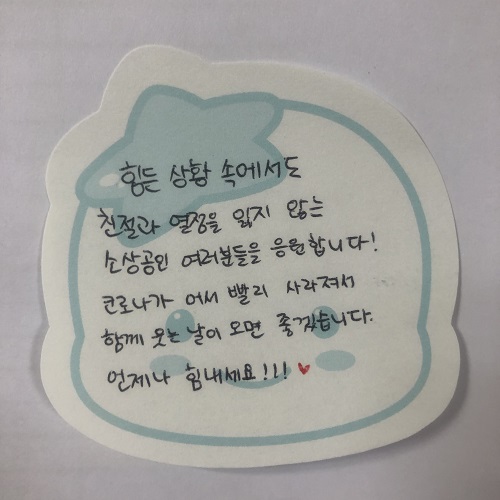 힘든 상황 속에서도
친절과 열정을 잃지 않는
소상공인 여러분들을 응원합니다!
코로나가 어서 빨리 사라져서
함께 웃는 날이 오면 좋겠습니다.
언제나 힘내세요!!! ♥